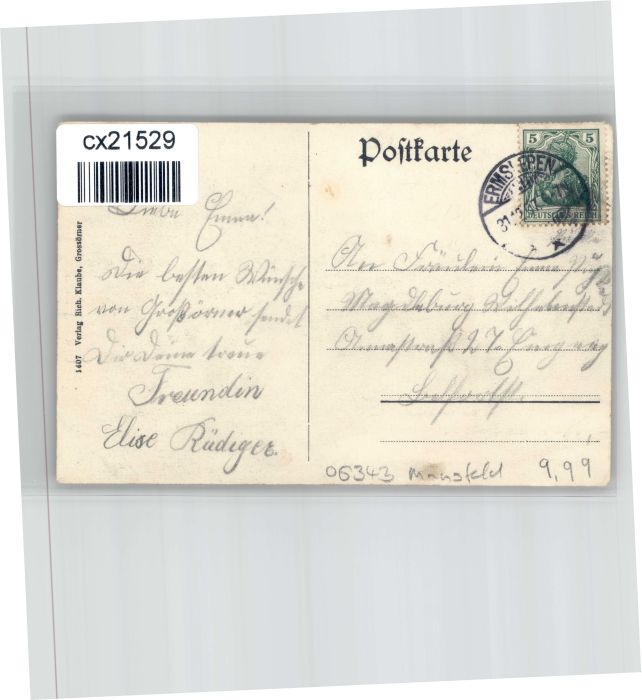 cx21529
Postkarte
5 5
DEUTSCHES REICH
ERMSLEBEN
Liebe Emma!
Die besten Wünsche
von Großörner sendet
Dir Deine treue
Freundin
Elise Rüdiger.
An Fräulein
Magdeburg Wilhelmstadt
Annastraße 27
1407 Verlag Rich. Klaube, Grossörner
06343 Mansfeld 9,99